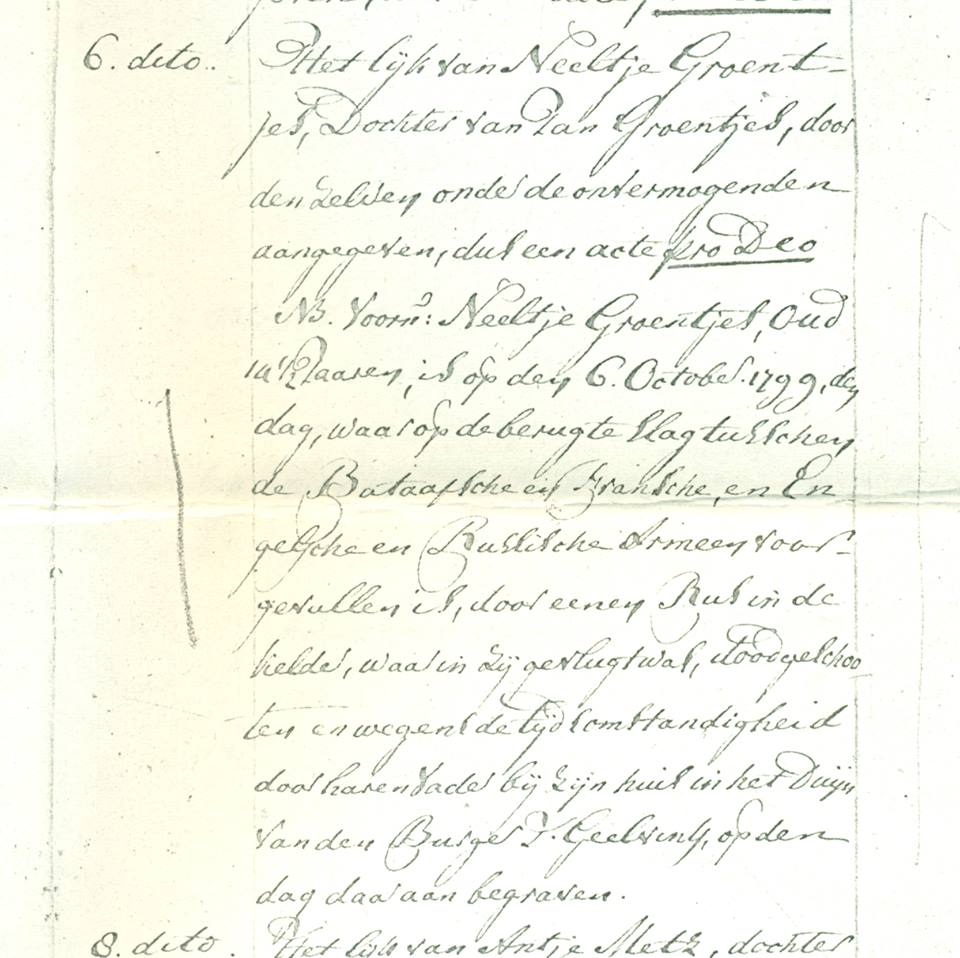 6. dito.. Het lijk van Neeltje Groent-
jes, Dochter van Jan Groentjes, door
den zelven onder de onvermogenden
aangegeven, dus een acte pro Deo
NB. Voorn: Neeltje Groentjes, Oud
Jaaren, is op den 6. October. 1799, den
dag, waar op de berugte slag tusschen
de Bataafsche en Fransche, en En
gelsche en Russische Armeen voor-
gevallen is, door eenen Rus in de
kelder, waar in zij gevlugt was, doodgeschoo
ten en wegens de tijdsomstandigheid
door haren vader bij zijn huis in het Duijn
van den Burger Geelvink, op den
dag daar aan begraven.
8. dito. Het lijk van Antje Metz, dochter